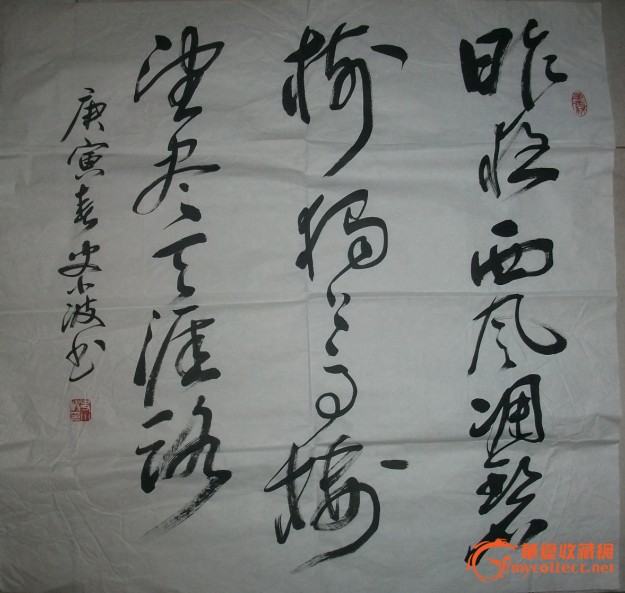 昨夜西风凋碧
树独上高楼
望尽天涯路
庚寅春史小波书
華夏收藏網
mycollect.net